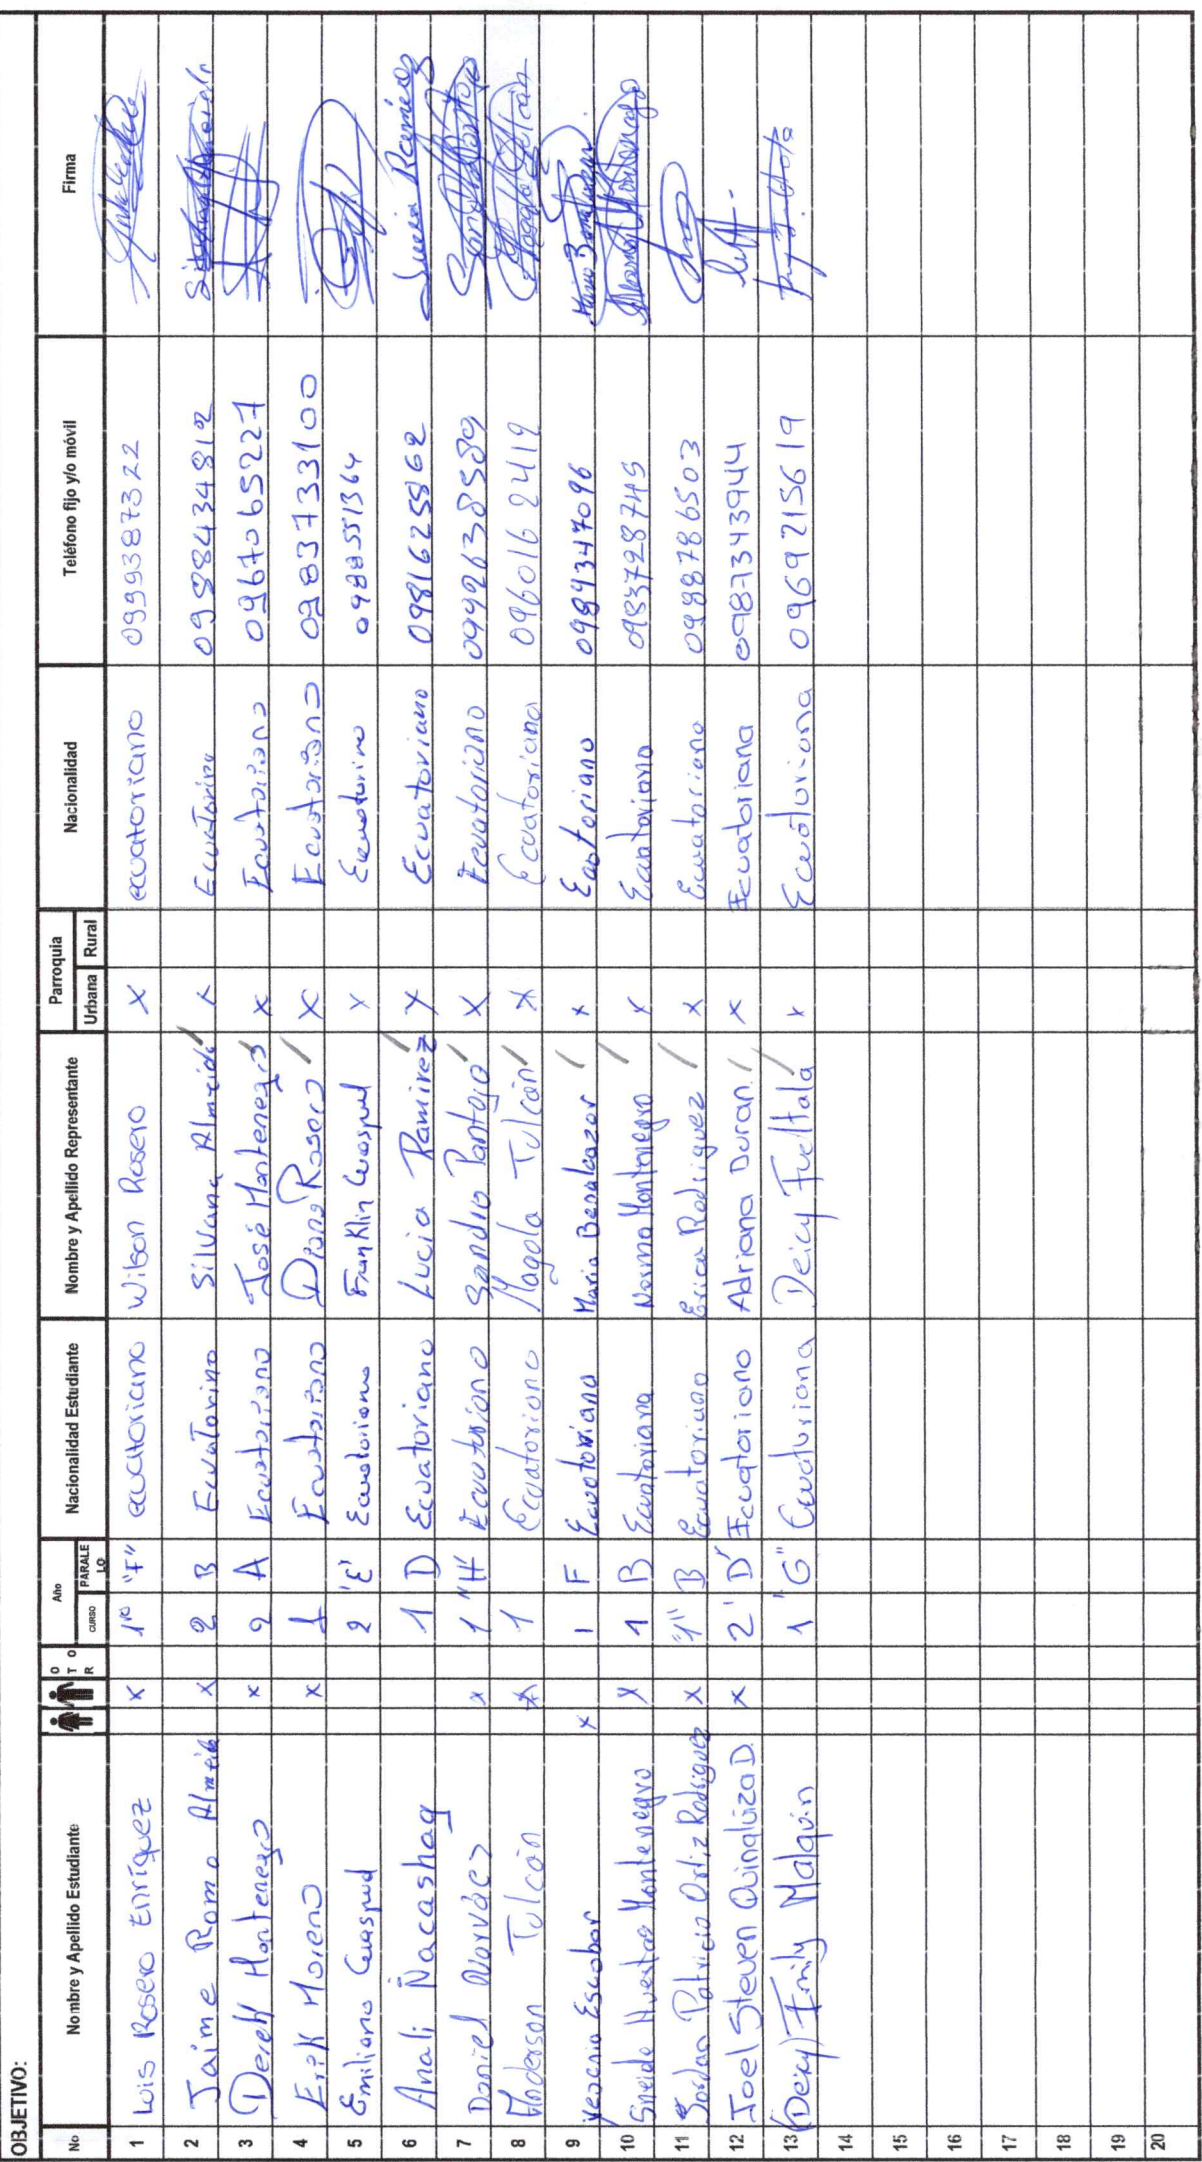 OBJETIVO:
No Nombre y Apellido Estudiante OTRO Año CURSO PARALELO Nacionalidad Estudiante Nombre y Apellido Representante Parroquia Urbana Rural Nacionalidad Teléfono fijo y/o móvil Firma
1 Luis Rosero Enríquez x 1ro "F" ecuatoriano Wilson Rosero X ecuatoriano 0999387322
2 Jaime Romo Almeida x 2 B Ecuatorino Silvana Almeida x Ecuatorino 0988434812
3 Derek Montenegro x 2 A Ecuatoriano José Montenegro x Ecuatoriano 0967065227
4 Erik Moreno x 1 Ecuatoriano Diana Rosero X Ecuatoriano 0983733100
5 Emiliano Cuaspud 2 'E' Ecuatoriano Franklin Cuaspud x Ecuatorino 0988551364
6 Anali Ñacashag 1 D Ecuatoriano Lucia Ramirez x Ecuatoriano 0981625862 Lucia Ramírez
7 Daniel Narváez x 1 "H" Ecuatoriano Sandra Pantoja X Ecuatoriano 0992638589
8 Anderson Tulcán x 1 Ecuatoriano Magola Tulcán x Ecuatoriana 0960162419
9 Yesenia Escobar x 1 F Ecuatoriana Maria Benalcazar x Eaotoriano 0984347096
10 Sneide Huertas Montenegro x 1 B Ecuatoriana Norma Montenegro x Ecuatoriano 0983728745
11 Jordan Patricio Ortiz Rodriguez x "1" B Ecuatoriano Erica Rodriguez x Ecuatoriana 0988786503
12 Joel Steven Quinaluiza D. x 2' D' Ecuatoriano Adriana Duran. x Ecuatoriana 0987343944
13 (Deicy) Emily Malquin 1 "G" Ecuatoriana Deicy Fueltala x Ecuatoriana 0969215619
14
15
16
17
18
19
20